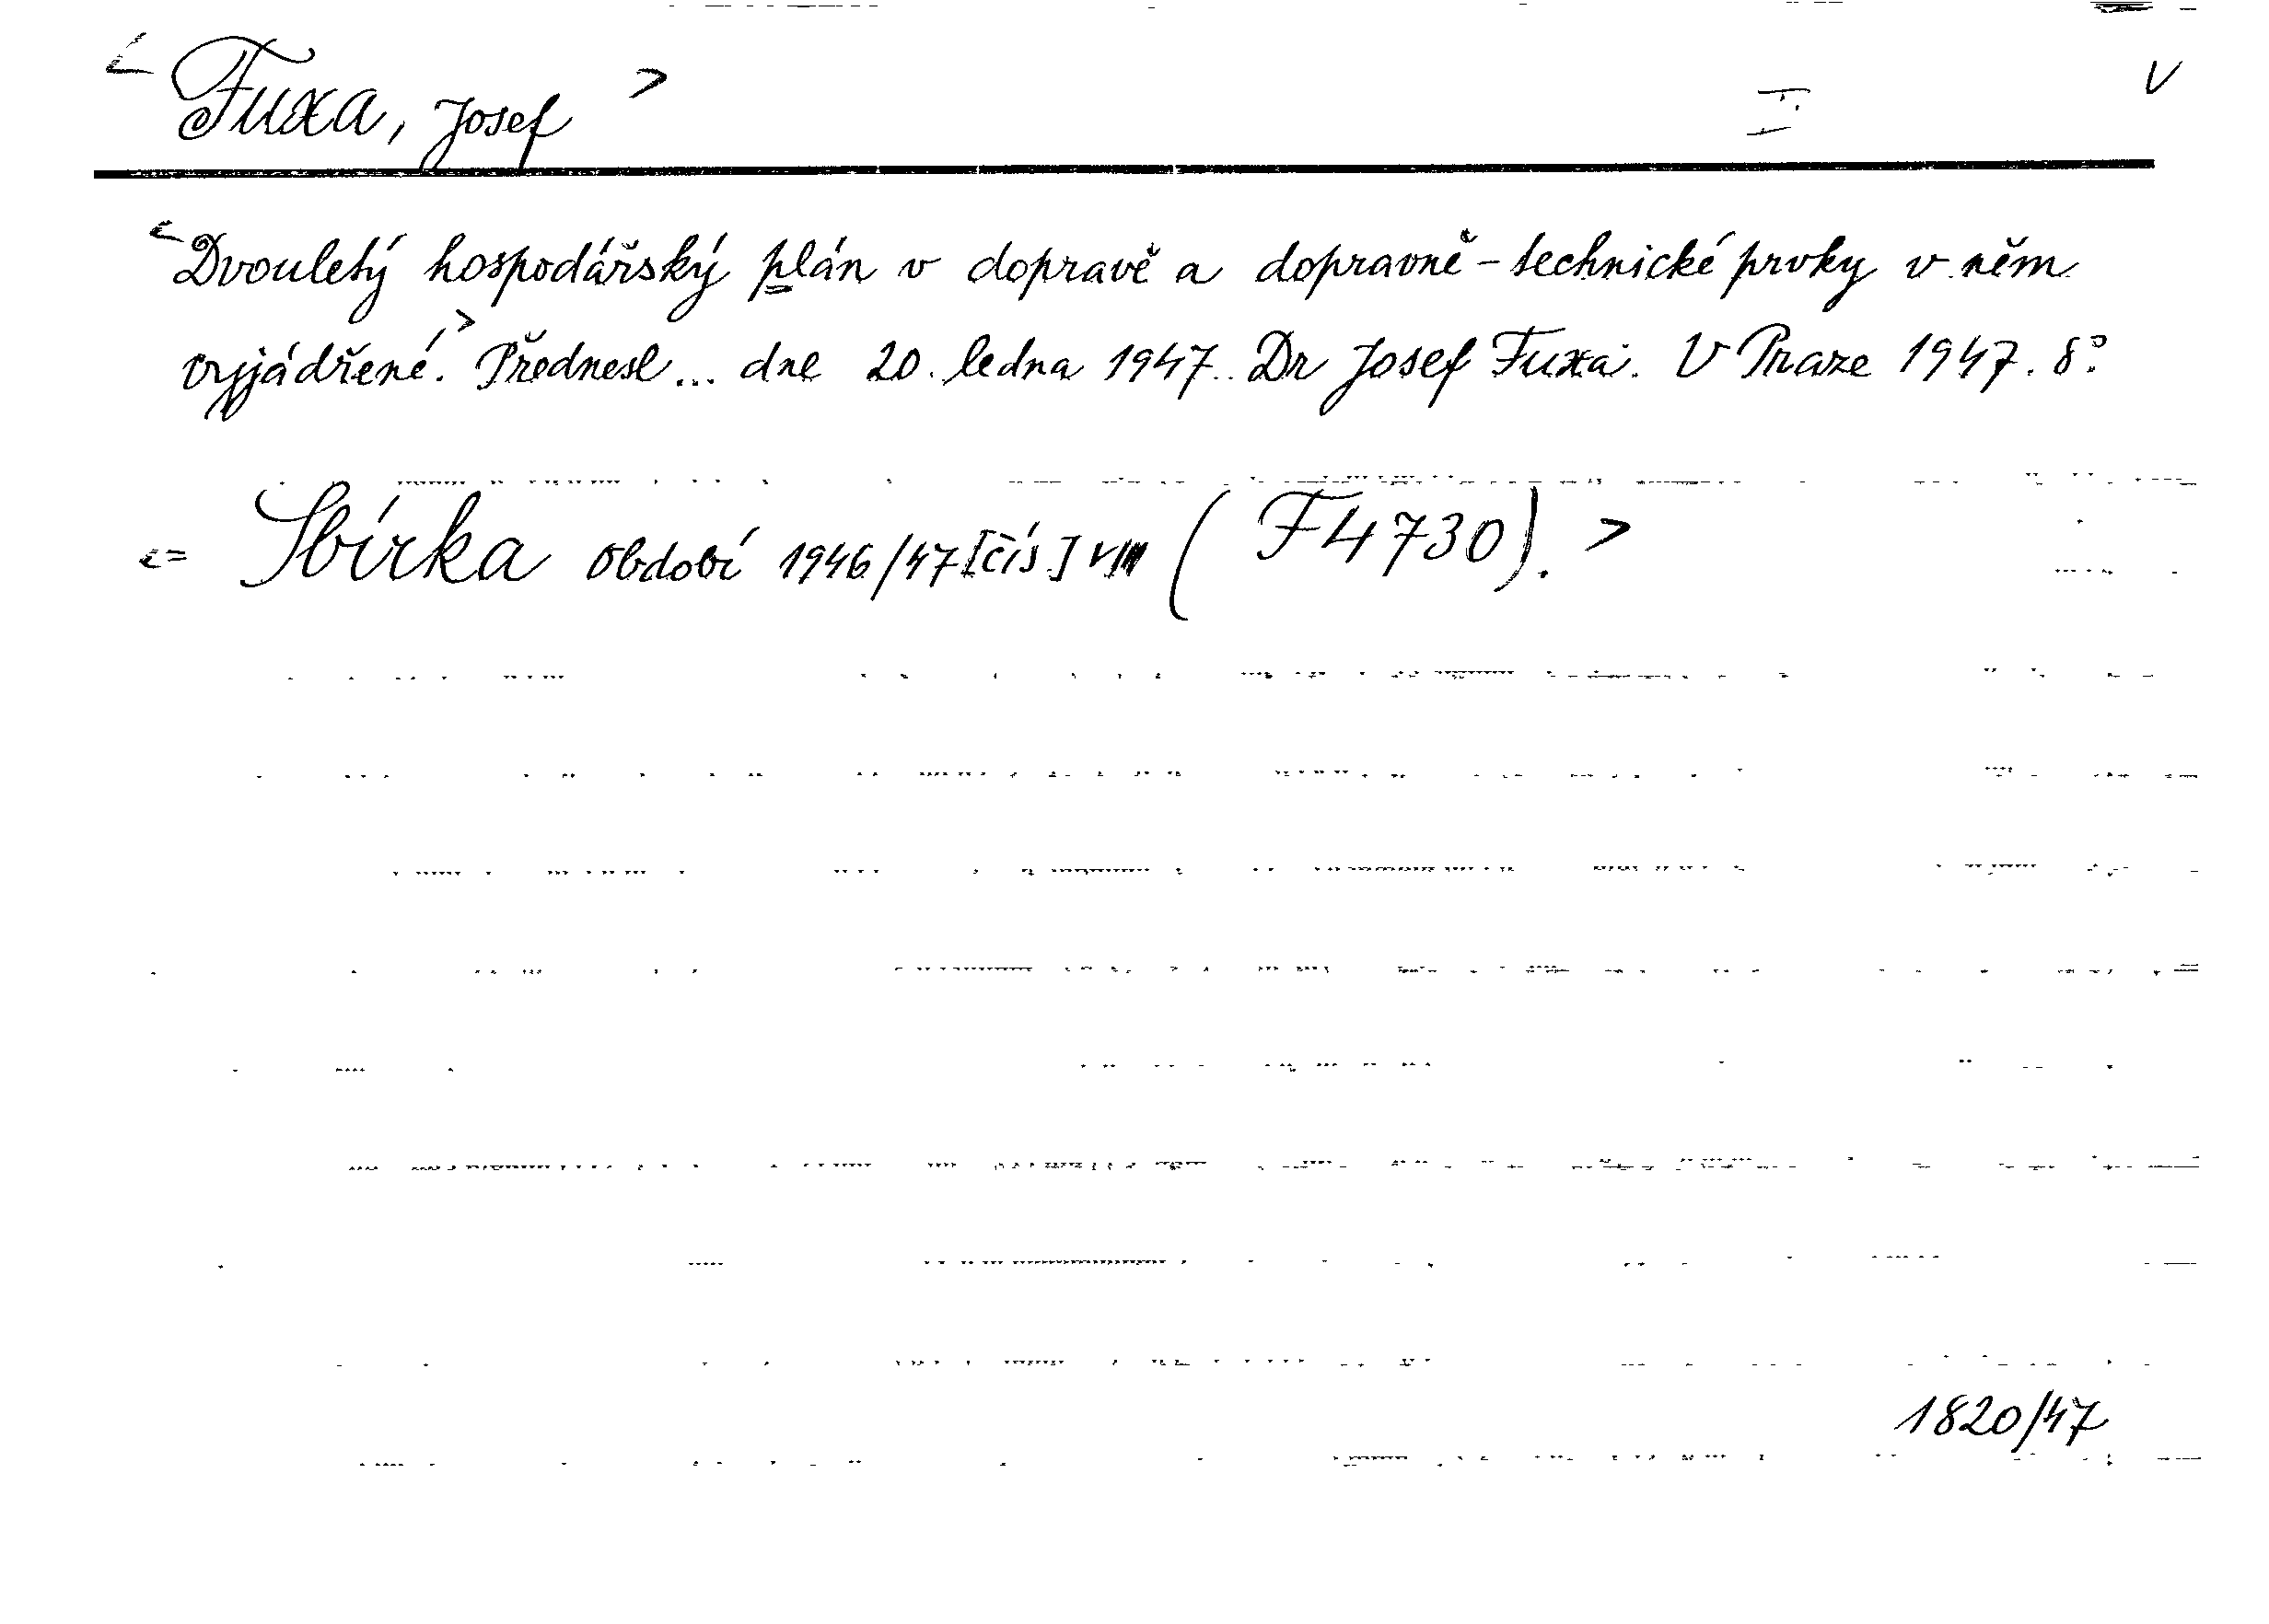 < Fuxa, Josef > I. V
<Dvouletý hospodářský plán v dopravě a dopravně-technické prvky v něm
vyjádřené.> Přednesl... dne 20. ledna 1947.. Dr Josef Fuxa. V Praze 1947. 8°.
<= Sbírka období 1946/47 [čís.] VIII (F 4730). >
1820/47